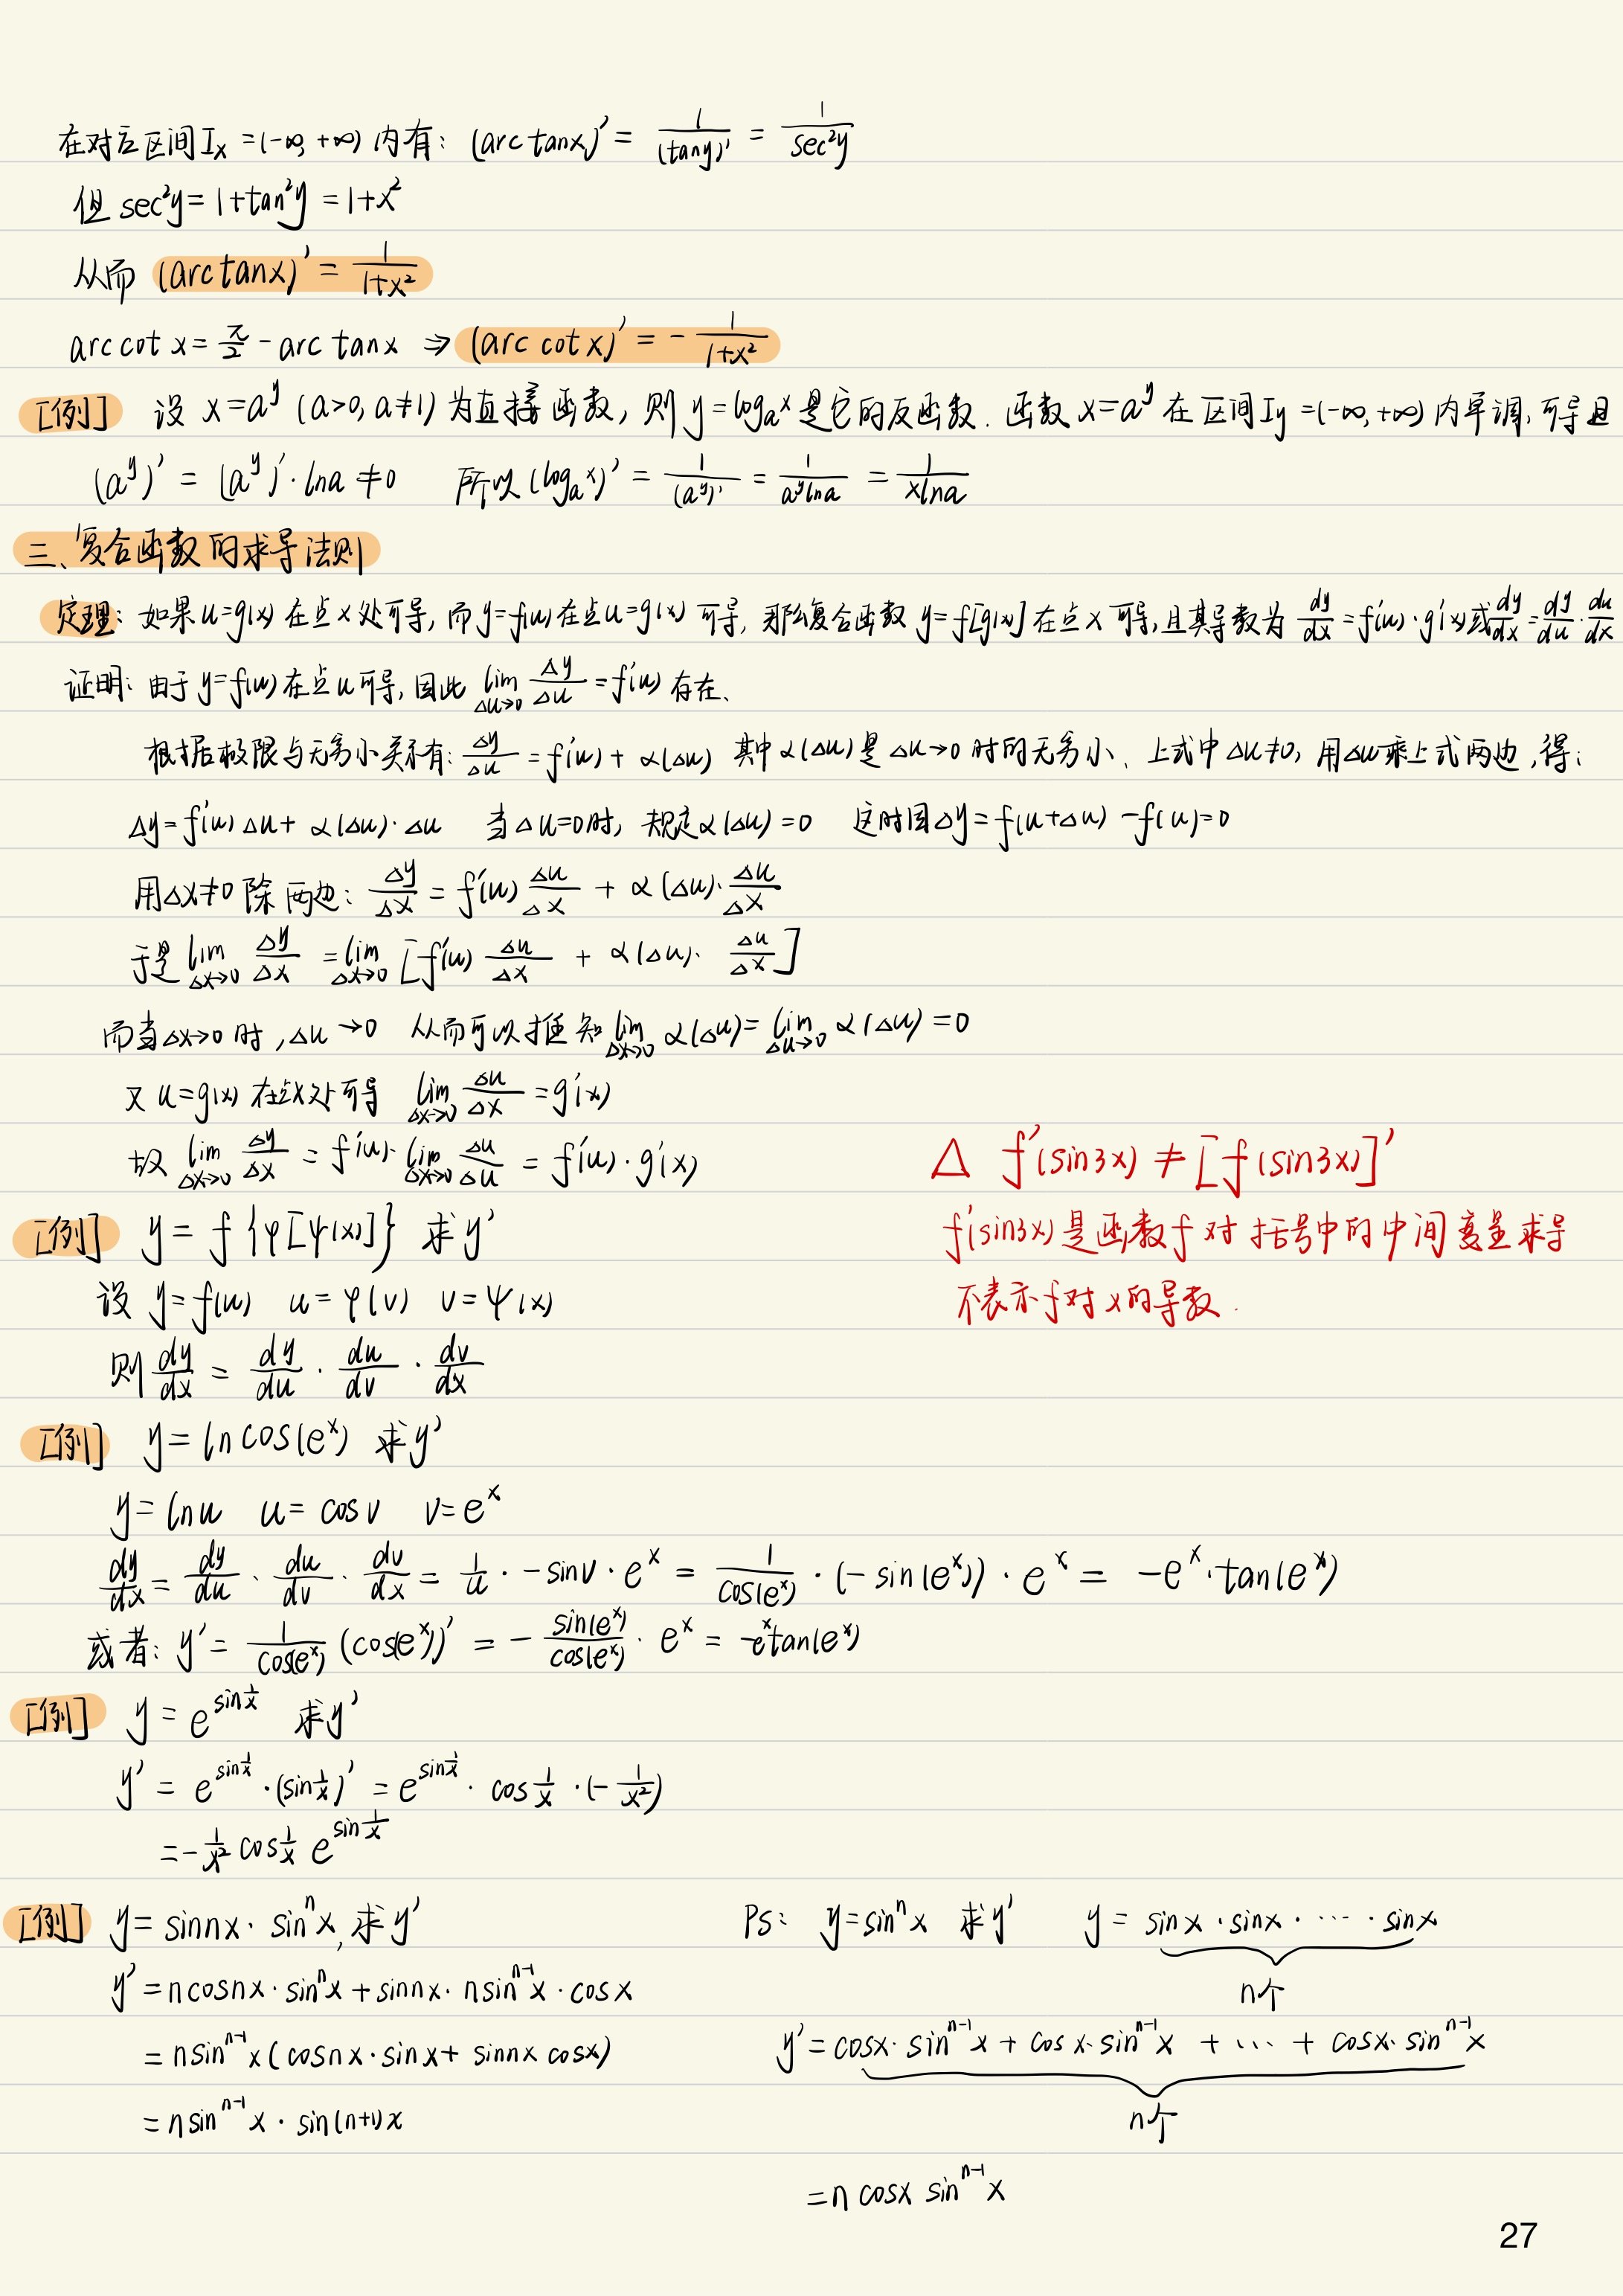 在对应区间Ix =(-∞, +∞) 内有: (arc tanx)' = 1/(tany)' = 1/sec²y
但 sec²y = 1+tan²y = 1+x²
从而 (arctanx)' = 1/(1+x²)
arc cot x = π/2 - arc tanx ⇒ (arc cot x)' = - 1/(1+x²)
[例] 设 x=a^y (a>0, a≠1) 为直接函数, 则 y=log_a x 是它的反函数. 函数 x=a^y 在区间Iy =(-∞, +∞) 内单调, 可导且
(a^y)' = (a^y)'·lna ≠0 所以 (log_a x)' = 1/(a^y)' = 1/(a^y lna) = 1/(xlna)
三、复合函数的求导法则
定理: 如果 u=g(x) 在点 x 处可导, 而 y=f(u) 在点 u=g(x) 可导, 那么复合函数 y=f[g(x)] 在点 x 可导, 且其导数为 dy/dx = f'(u)·g'(x) 或 dy/dx = dy/du · du/dx
证明: 由于 y=f(u) 在点 u 可导, 因此 lim_{Δu→0} Δy/Δu = f'(u) 存在、
根据极限与无穷小关系有: Δy/Δu = f'(u) + α(Δu) 其中 α(Δu) 是 Δu→0 时的无穷小、上式中 Δu≠0, 用Δu乘上式两边, 得:
Δy = f'(u) Δu + α(Δu)·Δu 当 Δu=0时, 规定α(Δu) =0 这时因Δy = f(u+Δu) - f(u) =0
用Δx≠0 除两边: Δy/Δx = f'(u) Δu/Δx + α(Δu)·Δu/Δx
于是 lim_{Δx→0} Δy/Δx = lim_{Δx→0} [f'(u) Δu/Δx + α(Δu)· Δu/Δx]
而当 Δx→0 时, Δu →0 从而可以推知 lim_{Δx→0} α(Δu) = lim_{Δu→0} α(Δu) = 0
又 u=g(x) 在点x处可导 lim_{Δx→0} Δu/Δx = g'(x)
故 lim_{Δx→0} Δy/Δx = f'(u)· lim_{Δx→0} Δu/Δu = f'(u)·g'(x)
△ f'(sin3x) ≠ [f(sin3x)]'
f'(sin3x) 是函数 f 对 括号中的中间变量求导
不表示 f 对 x 的导数.
[例] y = f{φ[ψ(x)]} 求 y'
设 y=f(u) u=φ(v) v=ψ(x)
则 dy/dx = dy/du · du/dv · dv/dx
[例] y = ln cos(e^x) 求 y'
y = lnu u = cosv v = e^x
dy/dx = dy/du · du/dv · dv/dx = 1/u · -sinv · e^x = 1/cos(e^x) · (-sin(e^x)) · e^x = -e^x·tan(e^x)
或者: y' = 1/cos(e^x) (cos(e^x))' = - sin(e^x)/cos(e^x) · e^x = -e^x tan(e^x)
[例] y = e^{sin 1/x} 求 y'
y' = e^{sin 1/x} · (sin 1/x)' = e^{sin 1/x} · cos 1/x · (- 1/x²)
= - 1/x² cos 1/x e^{sin 1/x}
[例] y = sinnx · sin^n x, 求 y'
y' = n cosnx · sin^n x + sinnx · n sin^{n-1} x · cosx
= n sin^{n-1} x (cosnx · sinx + sinnx cosx)
= n sin^{n-1} x · sin(n+1)x
PS: y = sin^n x 求 y' y = sinx · sinx · ··· · sinx
n个
y' = cosx· sin^{n-1} x + cosx· sin^{n-1} x + ... + cosx· sin^{n-1} x
n个
= n cosx sin^{n-1} x
27